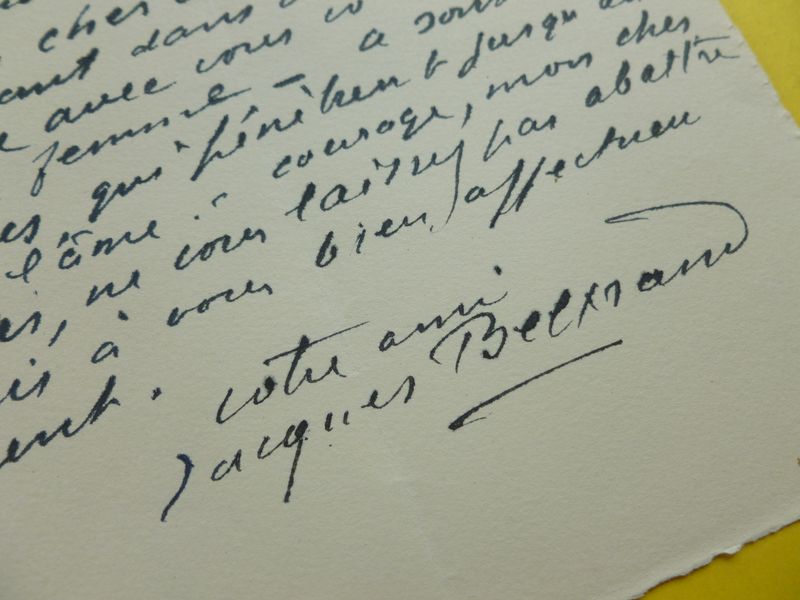 cher
ant dans
e avec vous
femme - a
es qui pénètrent jusqu'au
l'âme. courage, mon cher
ne vous laissez pas abattre
is à vous bien affectueu
ent.
votre ami
Jacques Beltrand